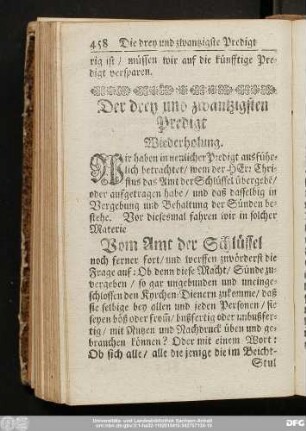 458 Die drey und zwantzigste Predigt
rig ist / müssen wir auf die künfftige Pre-
digt versparen.
Der drey und zwantzigsten
Predigt
Wiederholung.
Wir haben in neulicher Predigt ausführ-
lich betrachtet / wem der HErr Chri-
stus das Amt der Schlüssel übergebē /
oder aufgetragen habe / und daß dasselbig in
Vergebung und Behaltung der Sünden be-
stehe. Vor diesesmal fahren wir in solcher
Materie
Vom Amt der Schlüssel
noch ferner fort / und werffen zuvörderst die
Frage auf: Ob denn diese Macht / Sünde zu-
vergeben / so gar ungebunden und uneinge-
schlossen den Kyrchen-Dienern zukomme / daß
sie selbige bey allen und jeden Personen / sie
seyen böß oder from̄ / bußfertig oder unbußfer-
tig / mit Nutzen und Nachdruck üben und ge-
brauchen können? Oder mit einem Wort:
Ob sich alle / alle diejenige die im Beicht-
Stul
Universitäts- und Landesbibliothek Sachsen-Anhalt
DFG